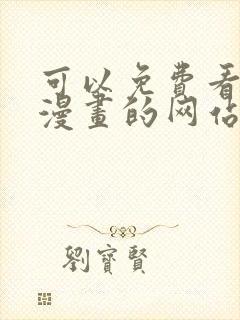 可以免費看
漫畫的网站
劉寶賢